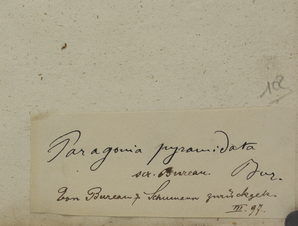 108
Paragonia pyramidata
scr. Bureau. Bur.
Von Bureau & Schumann zurückgek.
III. 97.